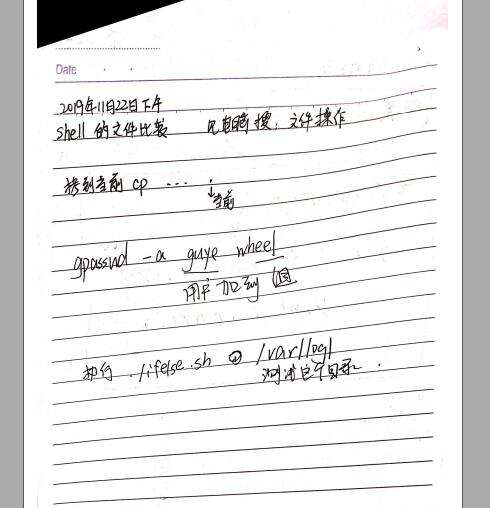 Date
2019年11月22日下午
shell 的文件比较 搜:文件操作
拷到当前 cp ... .
↓当前
gpasswd -a guye wheel
用户 加到 组
执行 ./ifelse.sh /var/log/
测试这个目录.